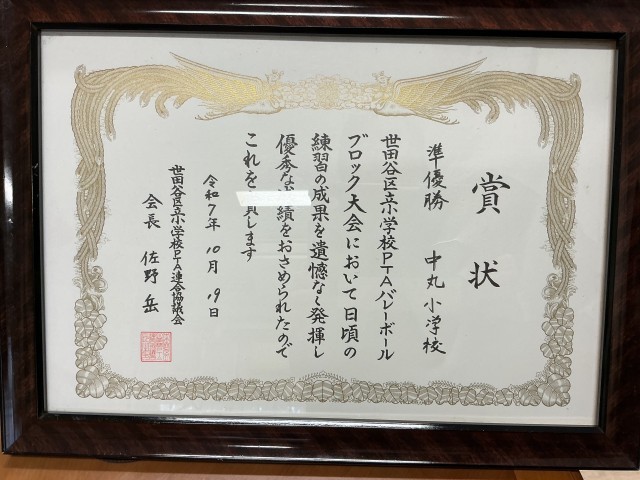 賞状
準優勝 中丸小学校
世田谷区立小学校PTAバレーボール
ブロック大会において日頃の
練習の成果を遺憾なく発揮し
優秀な 績をおさめられたので
これを 賞します
令和7年10月19日
世田谷区立小学校PTA連合協議会
会長 佐野岳